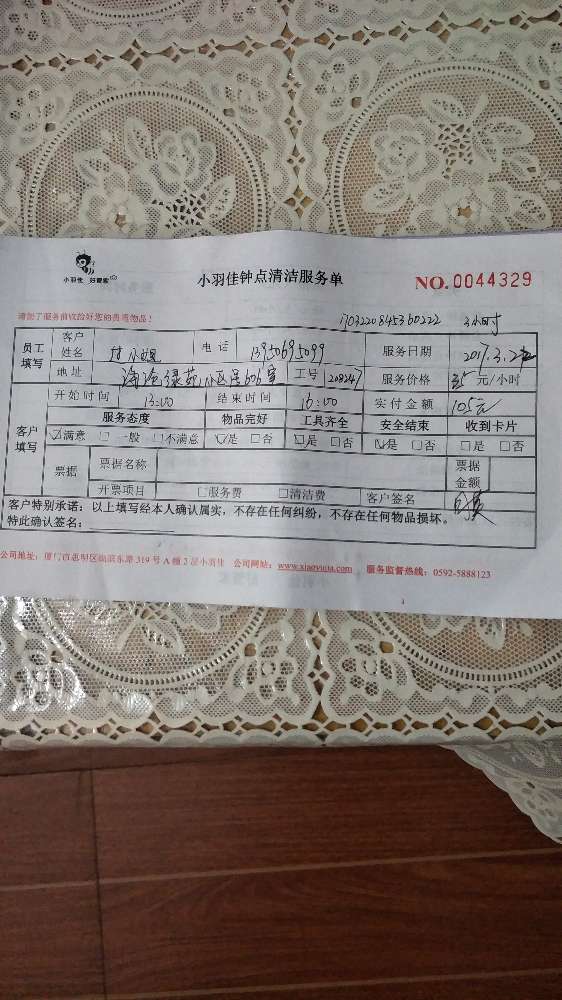 小羽佳 好管家
小羽佳钟点清洁服务单
NO.0044329
请您了服务前收拾好您的贵重物品!
1703220845360222 3小时
员工填写
客户姓名 电话 13950695099 服务日期 2017.3.22
地址 绿苑小区 606室 工号 208247 服务价格 35元/小时
客户填写
开始时间 13:00 结束时间 16:00 实付金额 105元
服务态度 物品完好 工具齐全 安全结束 收到卡片
☑满意 □一般 □不满意 ☑是 □否 ☑是 □否 ☑是 □否 □是 □否
票据 票据名称 票据金额
开票项目 □服务费 □清洁费 客户签名
客户特别承诺:以上填写经本人确认属实,不存在任何纠纷,不存在任何物品损坏。
特此确认签名:
公司地址:厦门市思明区仙岳东路 319 号 A 幢 2 层小羽佳 公司网站:www.xiaoyujia.com 服务监督热线:0592-5888123
1